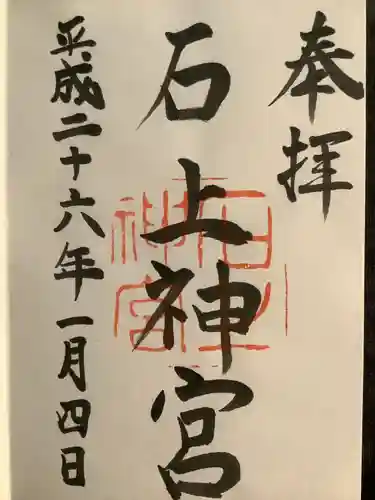 奉拝
石上神宮
平成二十六年一月四日